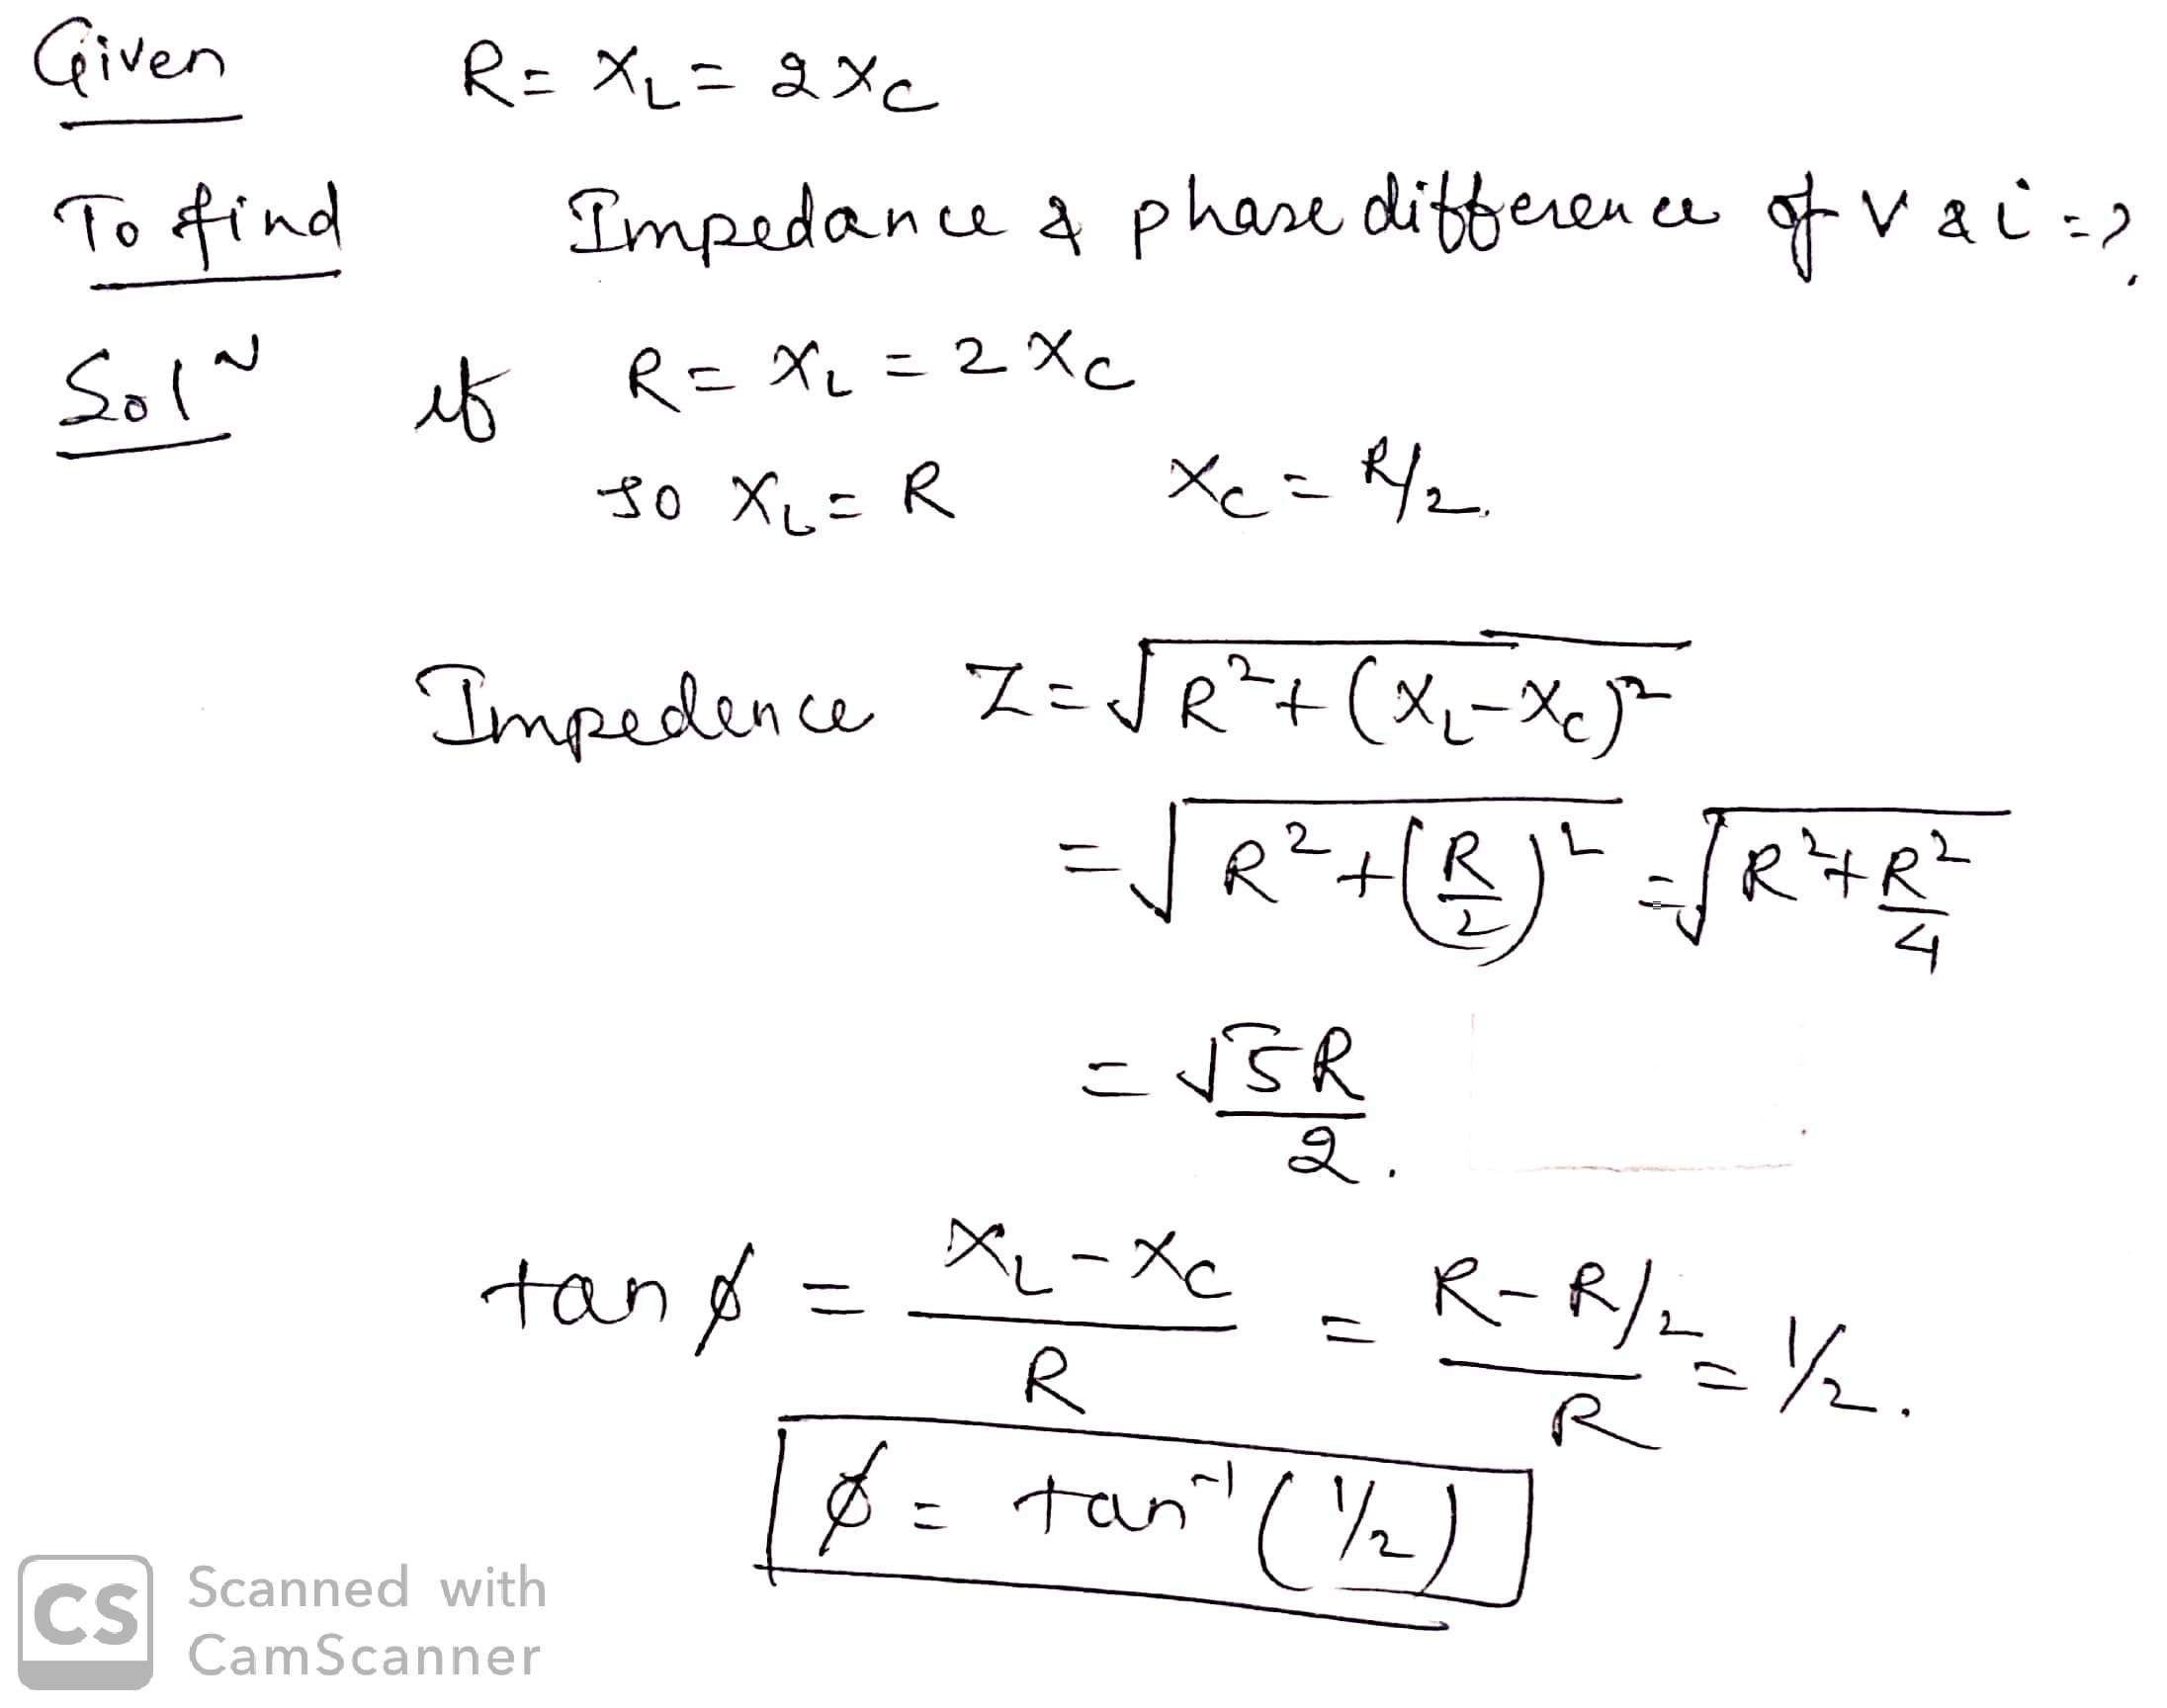 Given R = X_L = 2X_C
To find Impedance & phase difference of V & i = ?
Sol^n if R = X_L = 2X_C
so X_L = R X_C = R/2.
Impedence Z = √(R² + (X_L - X_C)²)
= √(R² + (R/2)²) = √(R² + R²/4)
= √5R/2.
tan ø = (X_L - X_C)/R = (R - R/2)/R = 1/2.
ø = tan⁻¹(1/2)
CS Scanned with
CamScanner